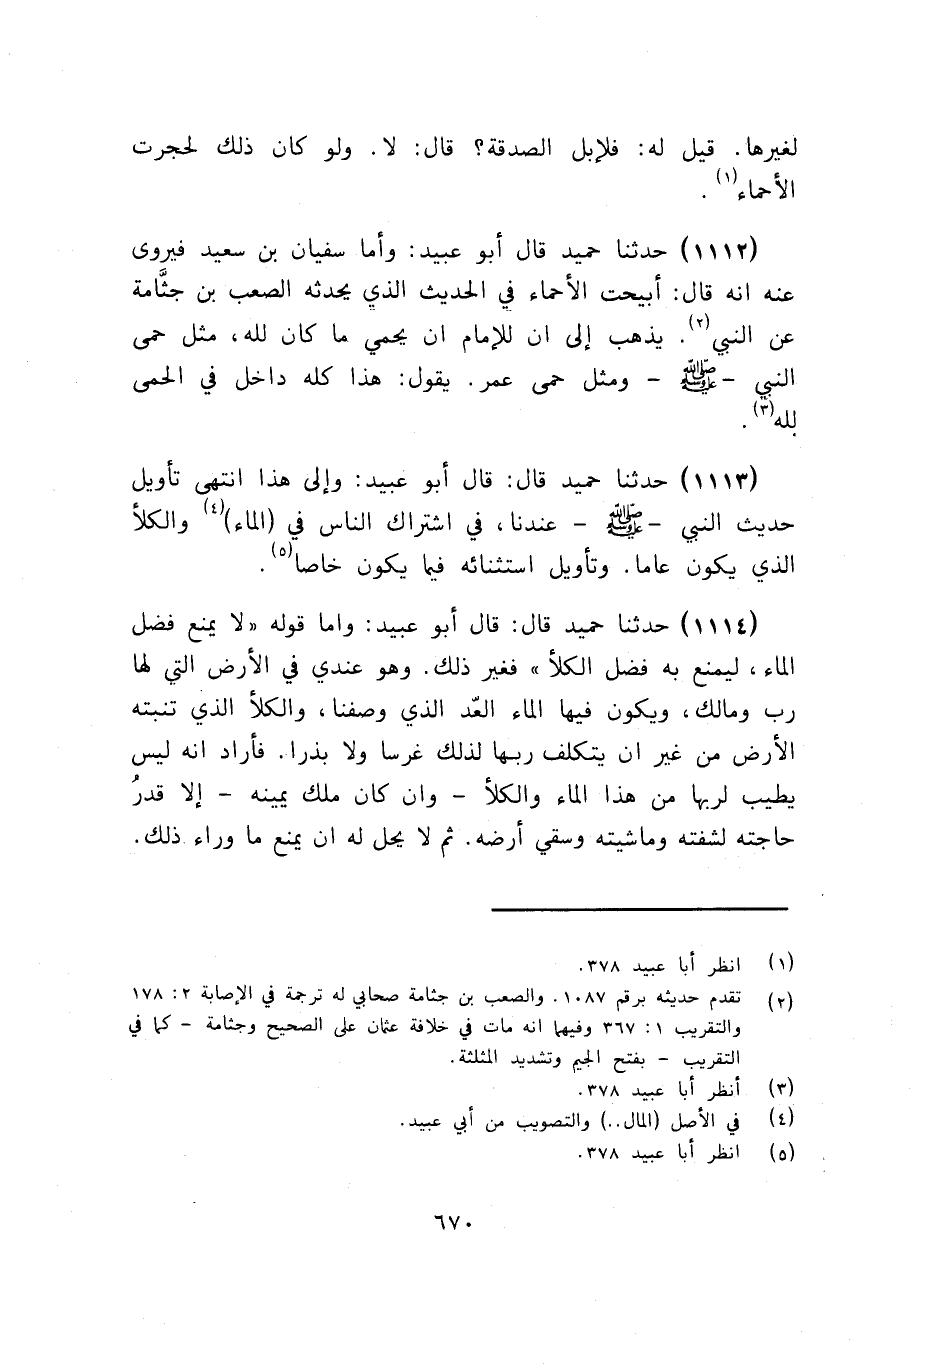 لغيرها. قيل له: فلإبل الصدقة؟ قال: لا. ولو كان ذلك لحجرت
الأحماء(١).
(١١١٢) حدثنا حميد قال أبو عبيد: وأما سفيان بن سعيد فيروى
عنه انه قال: أبيحت الأحماء في الحديث الذي يحدثه الصعب بن جثَّامة
عن النبي(٢). يذهب إلى ان للإمام ان يحمي ما كان لله، مثل حمى
النبي - ﷺ - ومثل حمى عمر. يقول: هذا كله داخل في الحمى
لله(٣).
(١١١٣) حدثنا حميد قال: قال أبو عبيد: وإلى هذا انتهى تأويل
حديث النبي - ﷺ - عندنا، في اشتراك الناس في (الماء)(٤) والكلأ
الذي يكون عاما. وتأويل استثنائه فيما يكون خاصا(٥).
(١١١٤) حدثنا حميد قال: قال أبو عبيد: واما قوله «لا يمنع فضل
الماء، ليمنع به فضل الكلأ» فغير ذلك. وهو عندي في الأرض التي لها
رب ومالك، ويكون فيها الماء العّد الذي وصفنا، والكلأ الذي تنبته
الأرض من غير ان يتكلف ربها لذلك غرسا ولا بذرا. فأراد انه ليس
يطيب لربها من هذا الماء والكلأ - وان كان ملك يمينه - إلا قدرُ
حاجته لشفته وماشيته وسقي أرضه. ثم لا يحل له ان يمنع ما وراء ذلك.
(١) انظر أبا عبيد ٣٧٨.
(٢) تقدم حديثه برقم ١٠٨٧. والصعب بن جثامة صحابي له ترجمة في الإصابة ٢: ١٧٨
والتقريب ١: ٣٦٧ وفيهما انه مات في خلافة عثمان على الصحيح وجثامة - كما في
التقريب - بفتح الجيم وتشديد المثلثة.
(٣) أنظر أبا عبيد ٣٧٨.
(٤) في الأصل (المال..) والتصويب من أبي عبيد.
(٥) انظر أبا عبيد ٣٧٨.
٦٧٠